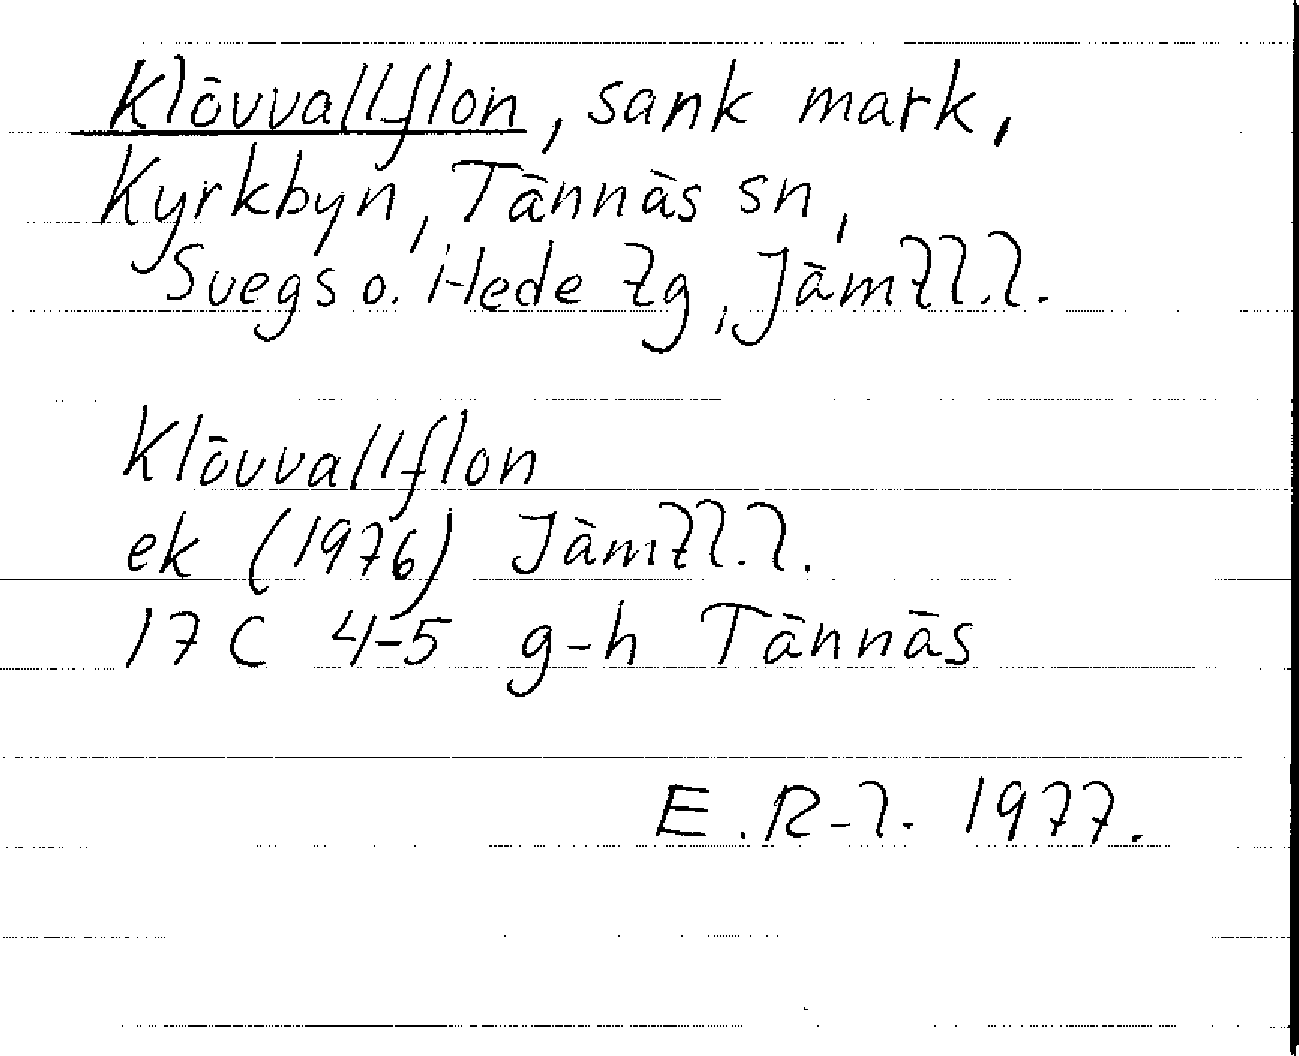 Klövvallflon, sank mark,
Kyrkbyn, Tännäs sn,
Svegs o. Hede tg, Jämtl.l.
Klövvallflon
ek (1976) Jämtl.l.
17 C 4-5 g-h Tännäs
E.R-l. 1977.